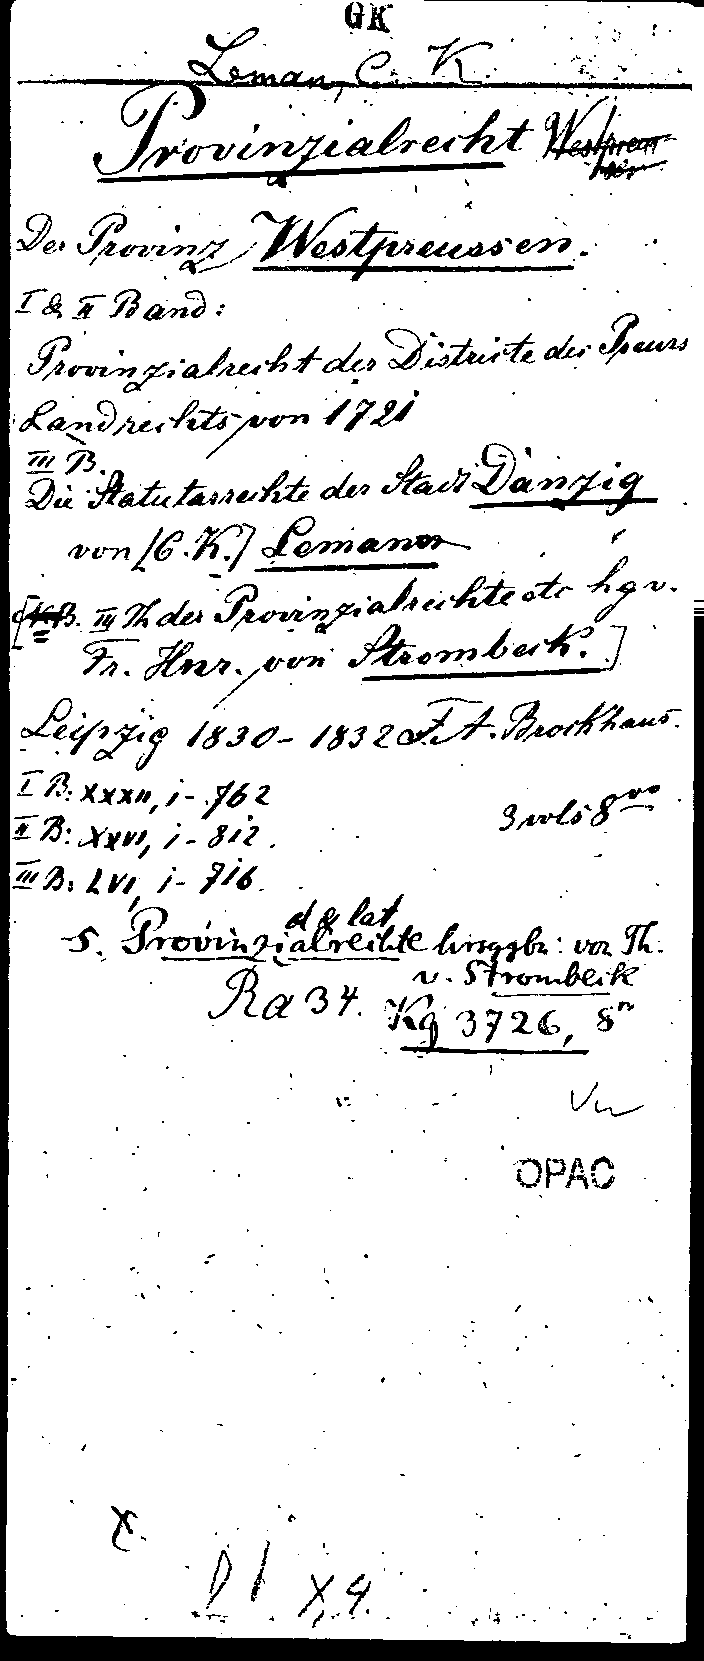 GK
Leman, C. K.
Provinzialrecht Westpreussen
Der Provinz Westpreussen.
I & II Band:
Provinzialrecht der Districte des Preuss
Landrechts von 1721
III B.
Die Statutarrechte der Stadt Danzig
von [C. K.] Leman
B. III Th der Provinzialrechte etc hg v.
Fr. Hnr. von Strombeck.]
Leipzig 1830-1832 F. A. Brockhaus.
I B: XXXII, 1-762
3 vols 8vo
II B: XXVI, 1-812.
III B: LVI, 1-716.
S. Provinzialrechte d & lat hrsggbn: von Th.
v. Strombeck
Ra 34. Kg 3726, 8n
OPAC
X.
X, 4.